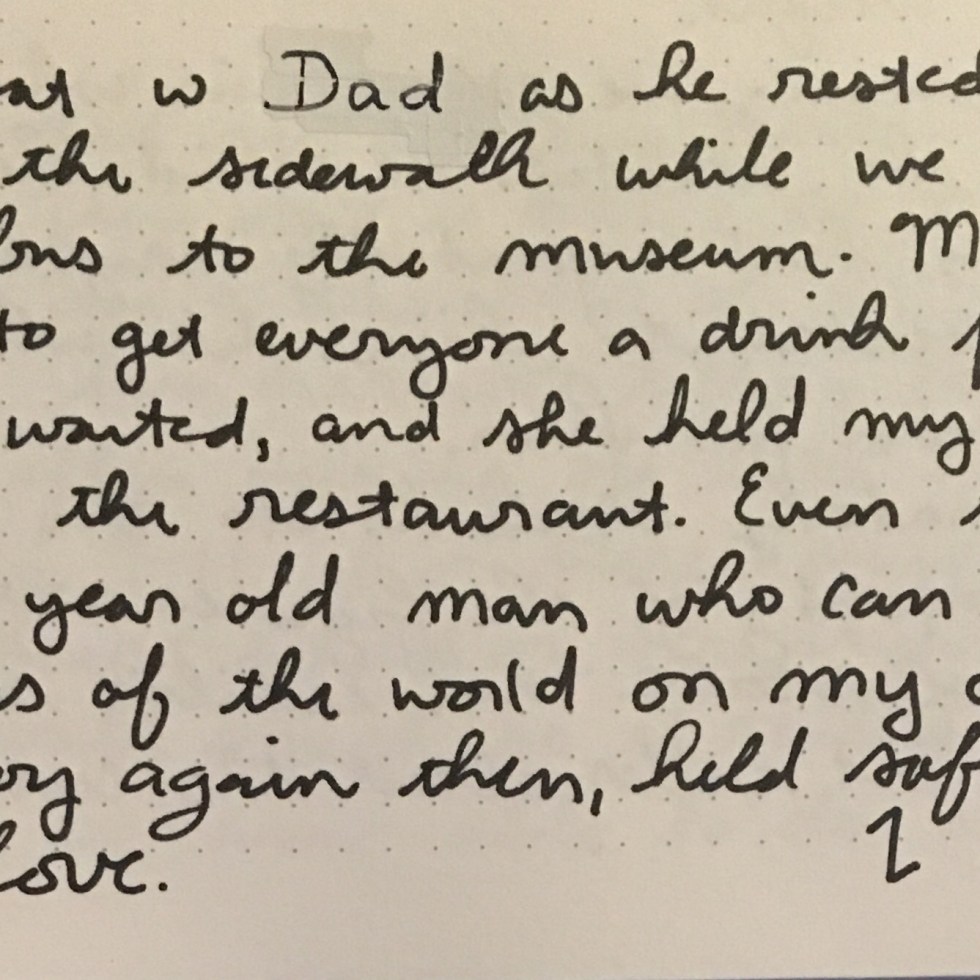 w Dad as he rested
the sidewalk while we
to the museum.
to get everyone a drink
waited, and she held my
the restaurant. Even
year old man who can
of the world on my
again then, held
love.